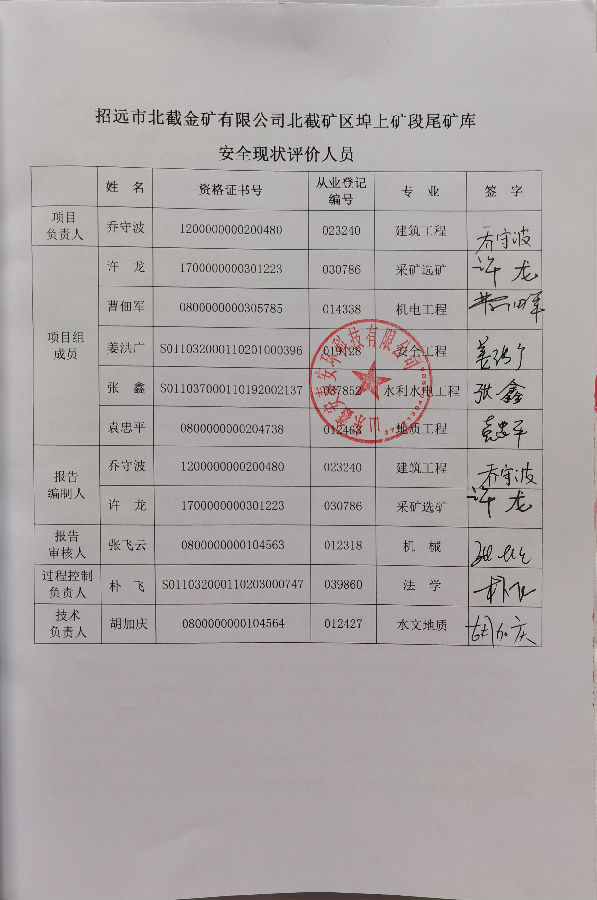 招远市北截金矿有限公司北截矿区埠上矿段尾矿库
安全现状评价人员
姓 名 资格证书号 从业登记编号 专 业 签 字
项目负责人 乔守波 1200000000200480 023240 建筑工程 乔守波
项目组成员 许 龙 1700000000301223 030786 采矿选矿 许龙
曹佃军 0800000000305785 014338 机电工程
姜洪广 S011032000110201000396 019128 安全工程
张 鑫 S011037000110192002137 037852 水利水电工程 张鑫
袁忠平 0800000000204738 012463 地质工程 袁忠平
报告编制人 乔守波 1200000000200480 023240 建筑工程 乔守波
许 龙 1700000000301223 030786 采矿选矿 许龙
报告审核人 张飞云 0800000000104563 012318 机 械
过程控制负责人 朴 飞 S011032000110203000747 039860 法 学 朴飞
技术负责人 胡加庆 0800000000104564 012427 水文地质 胡加庆